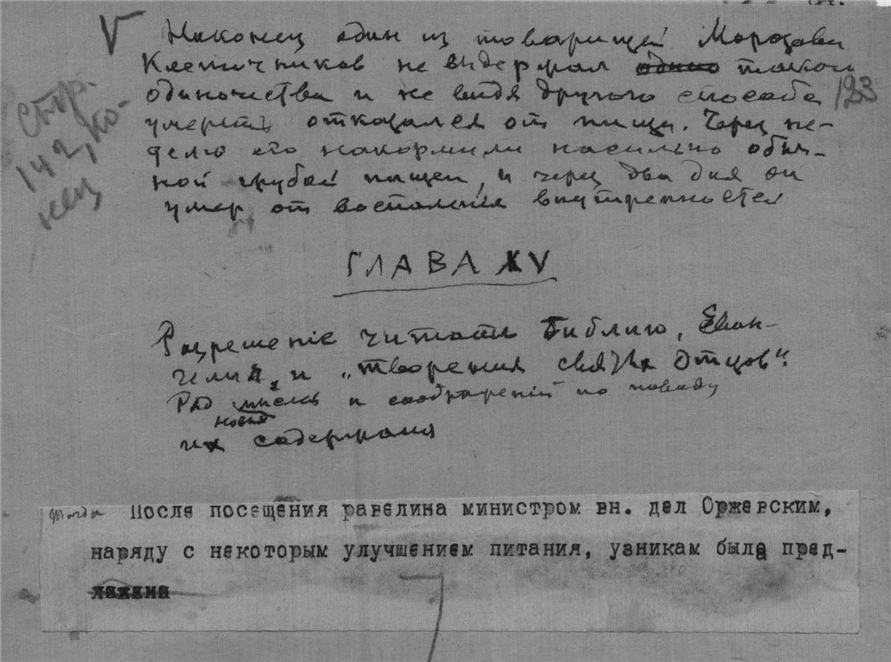 V Наконец один из товарищей Морозова
Клеточников не выдержал такого
одиночества и не видя другого способа 123
умереть отказался от пищи. Через не-
делю его накормили насильно обыч-
ной грубой пищей, и через два дня он
умер от воспаления внутренностей
Стр.
142, ко-
нец
ГЛАВА XV
Разрешеніе читать Библию, Еван-
гелия, и „творения святых Отцов“.
Ряд мыслей и соображеній по поводу
новые
их содержания
Тогда После посещения равелина министром вн. дел Оржевским,
наряду с некоторым улучшением питания, узникам была пред-